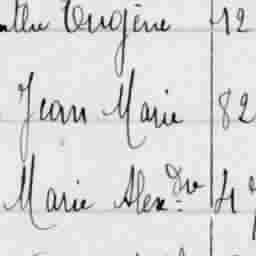 Eugène 12
Jean Marie 82
Marie Alexdre 4